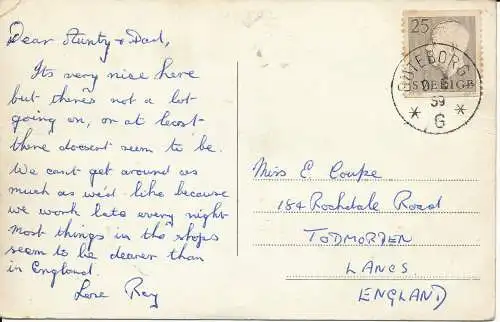 Dear Aunty & Dad,
Its very nice here
but there's not a lot
going on, or at least
there doesent seem to be.
We cant get around as
much as we'd like because
we work late every night
most things in the shops
seem to be dearer than
in England.
Love Ray
25
SVERIGE
GÖTEBORG
59
* *
G
Miss E Coupe
184 Rochdale Road
TODMORDEN
LANCS
ENGLAND